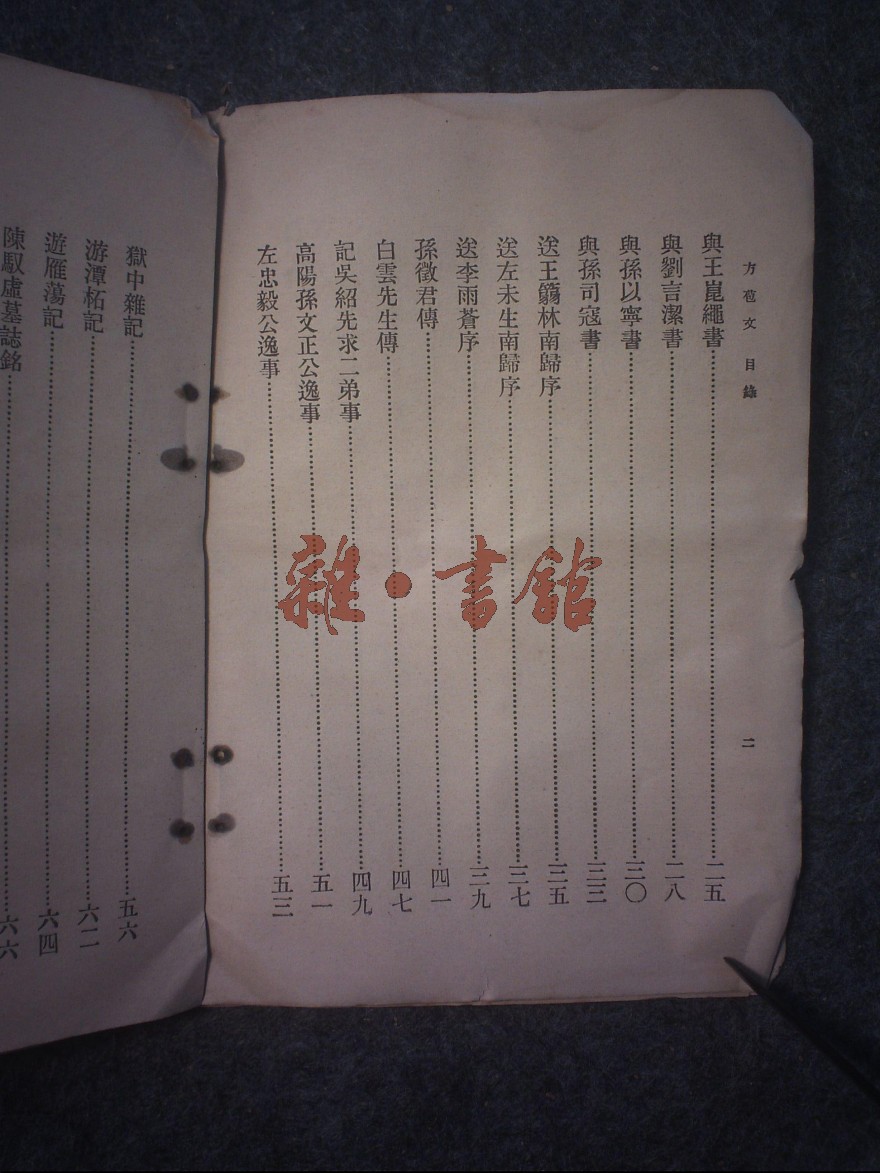 方苞文 目錄 二
與王崑繩書 二五
與劉言潔書 二八
與孫以寧書 三〇
與孫司寇書 三三
送王篛林南歸序 三五
送左未生南歸序 三七
送李雨蒼序 三九
孫徵君傳 四一
白雲先生傳 四七
記吳紹先求二弟事 四九
高陽孫文正公逸事 五一
左忠毅公逸事 五三
獄中雜記 五六
游潭柘記 六二
遊雁蕩記 六四
陳馭虛墓誌銘 六六
雜·書館